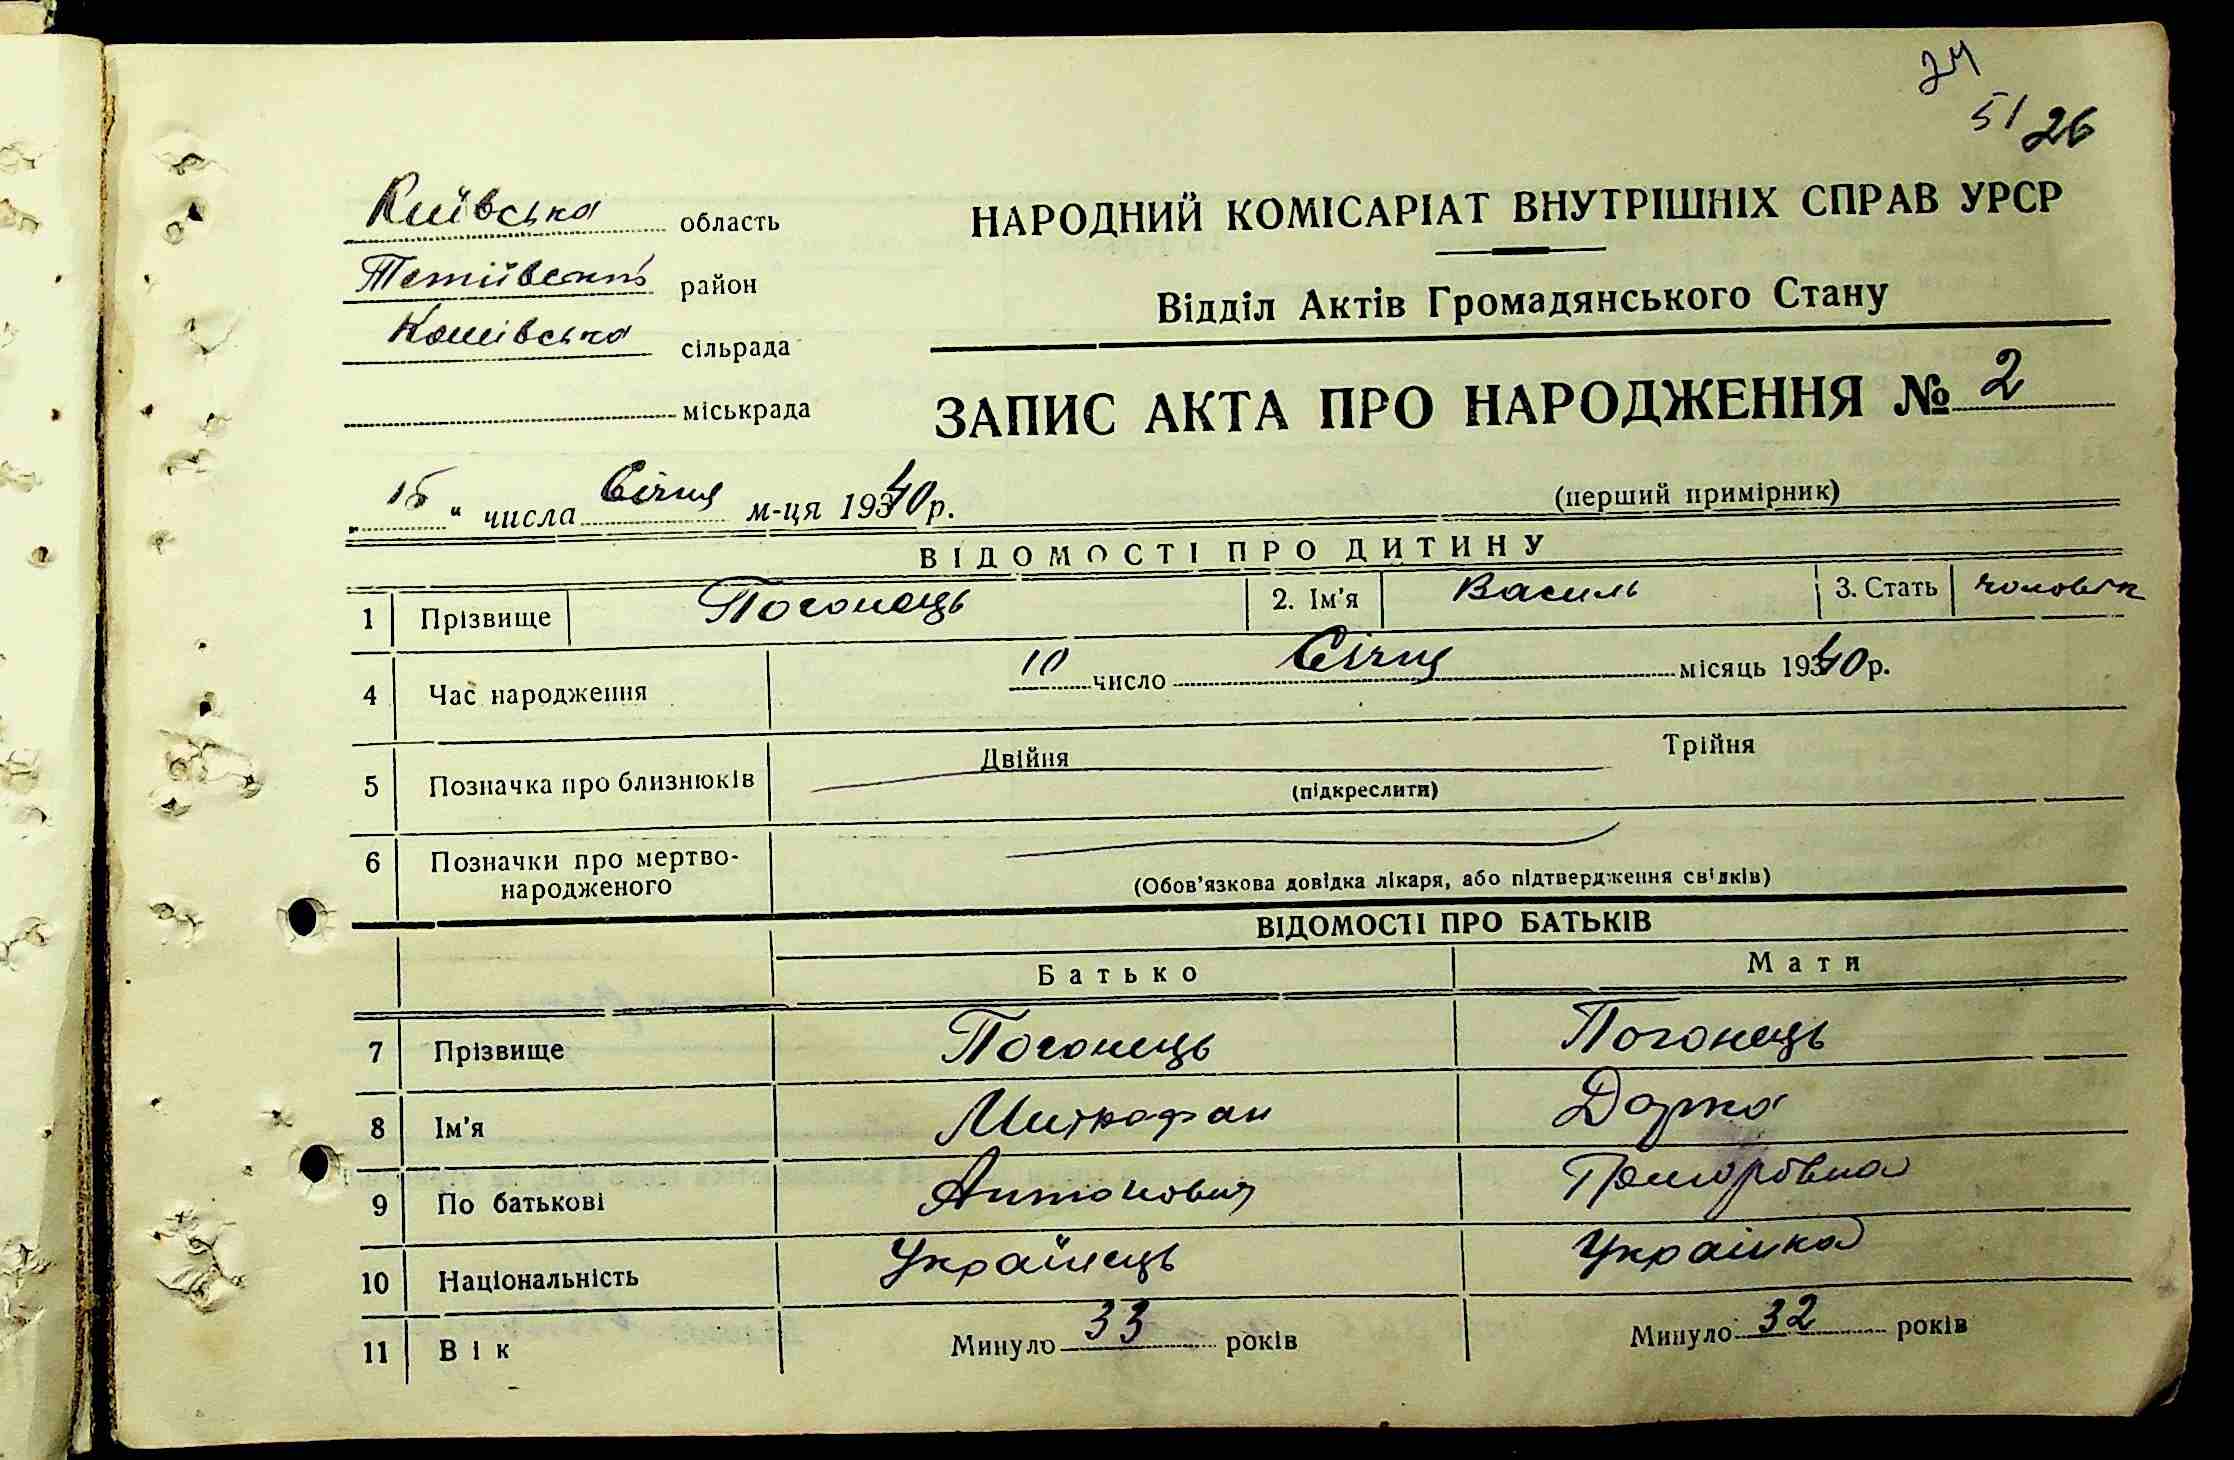 24
51 26
Київська область
Тетіївський район
Кашівська сільрада
міськрада
НАРОДНИЙ КОМІСАРІАТ ВНУТРІШНІХ СПРАВ УРСР
Відділ Актів Громадянського Стану
ЗАПИС АКТА ПРО НАРОДЖЕННЯ № 2
„15“ числа Січня м-ця 1940 р.
(перший примірник)
ВІДОМОСТІ ПРО ДИТИНУ
1 Прізвище Погонець 2. Ім'я Василь 3. Стать чоловік
4 Час народження 10 число Січня місяць 1940 р.
5 Позначка про близнюків Двійня Трійня
(підкреслити)
6 Позначки про мертво-
народженого
(Обов'язкова довідка лікаря, або підтвердження свідків)
ВІДОМОСТІ ПРО БАТЬКІВ
Батько Мати
7 Прізвище Погонець Погонець
8 Ім'я Митрофан Дарка
9 По батькові Антонович
10 Національність Українець Українка
11 Вік Минуло 33 років Минуло 32 років